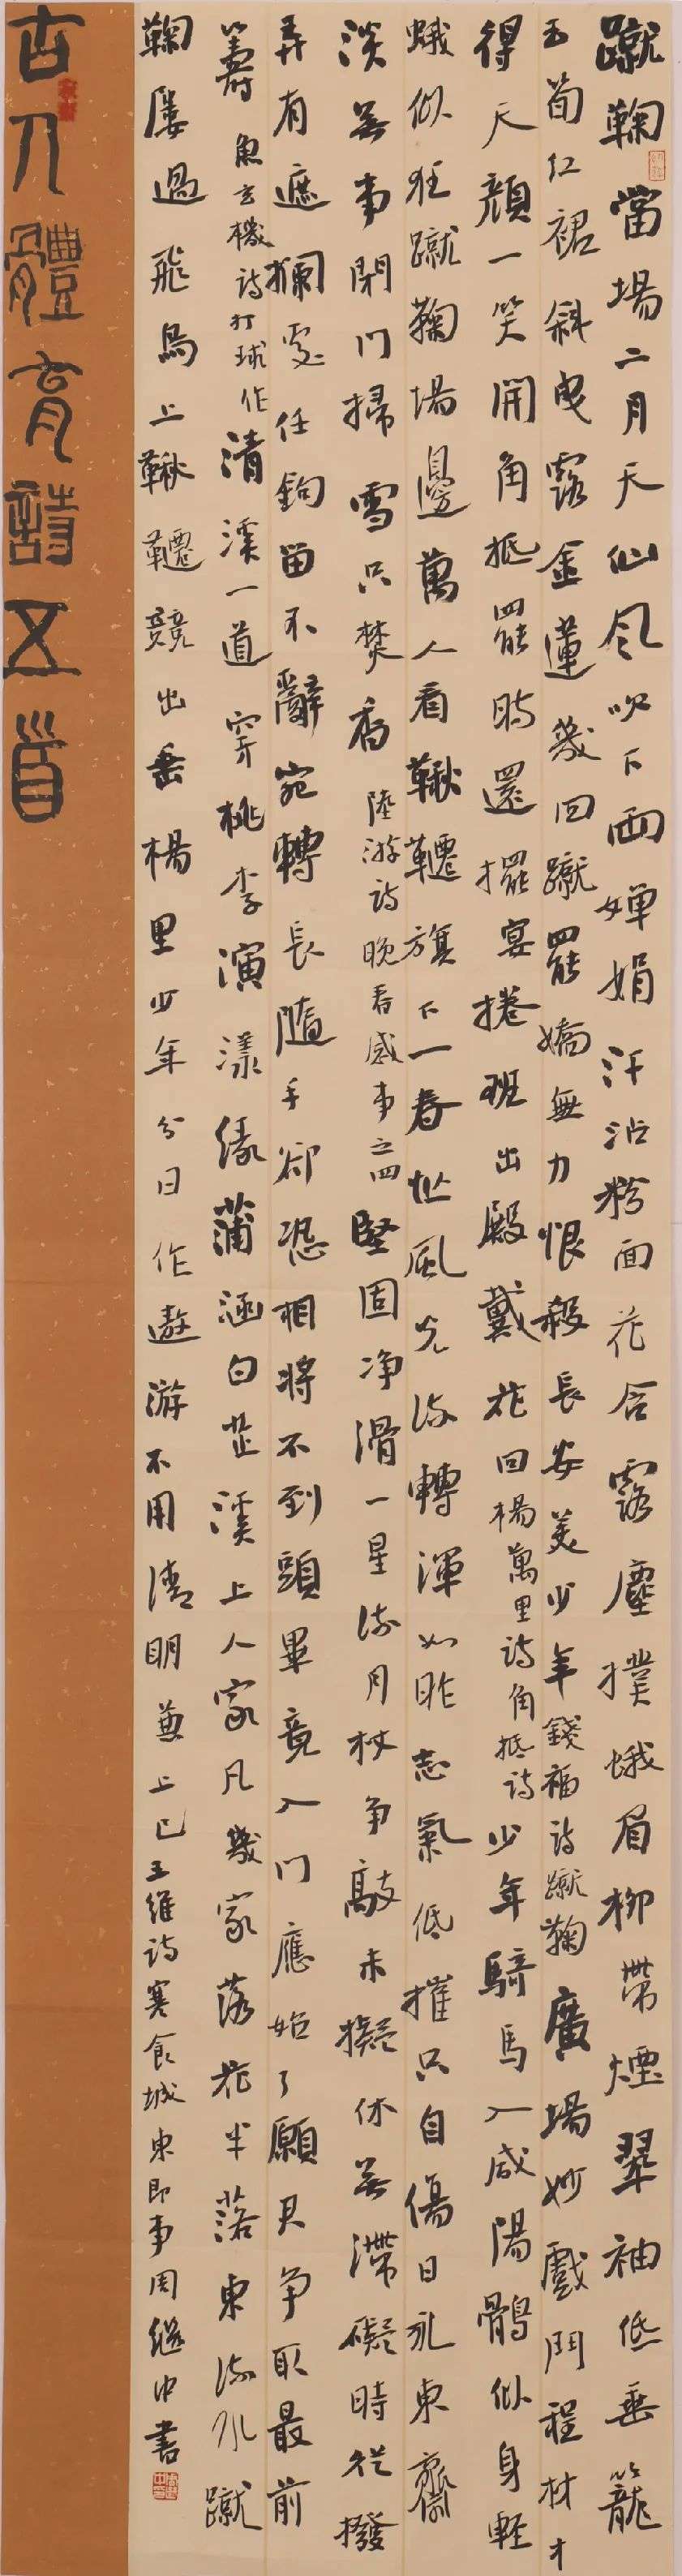 蹴鞠當場二月天仙風吹下兩嬋娟汗沾粉面花含露塵撲蛾眉柳帶煙翠袖低垂籠
玉筍紅裙斜曳露金蓮幾回蹴罷嬌無力恨殺長安美少年錢福詩蹴鞠廣場妙戲鬥程材才
得天顏一笑開角抵罷時還擺宴捲班出殿戴花回楊萬里詩角抵詩少年騎馬入咸陽鶻似身輕
蛾似狂蹴鞠場邊萬人看鞦韆旗下一春忙風光流轉渾如昨志氣低摧只自傷日永東齋
淡無事閉門掃雪只焚香陸游詩晚春感事之四堅固净滑一星流月杖争敲未擬休無滯礙時從撥
弄有遮攔處任鉤留不辭宛轉長隨手卻恐相將不到頭畢竟入門應始了願君争取最前
籌魚玄機詩打球作清溪一道穿桃李演漾綠蒲涵白芷溪上人家凡幾家落花半落東流水蹴
鞠屢過飛鳥上鞦韆競出垂楊里少年分日作遨游不用清明兼上巳王維詩寒食城東即事周繼中書
古人體育詩五首